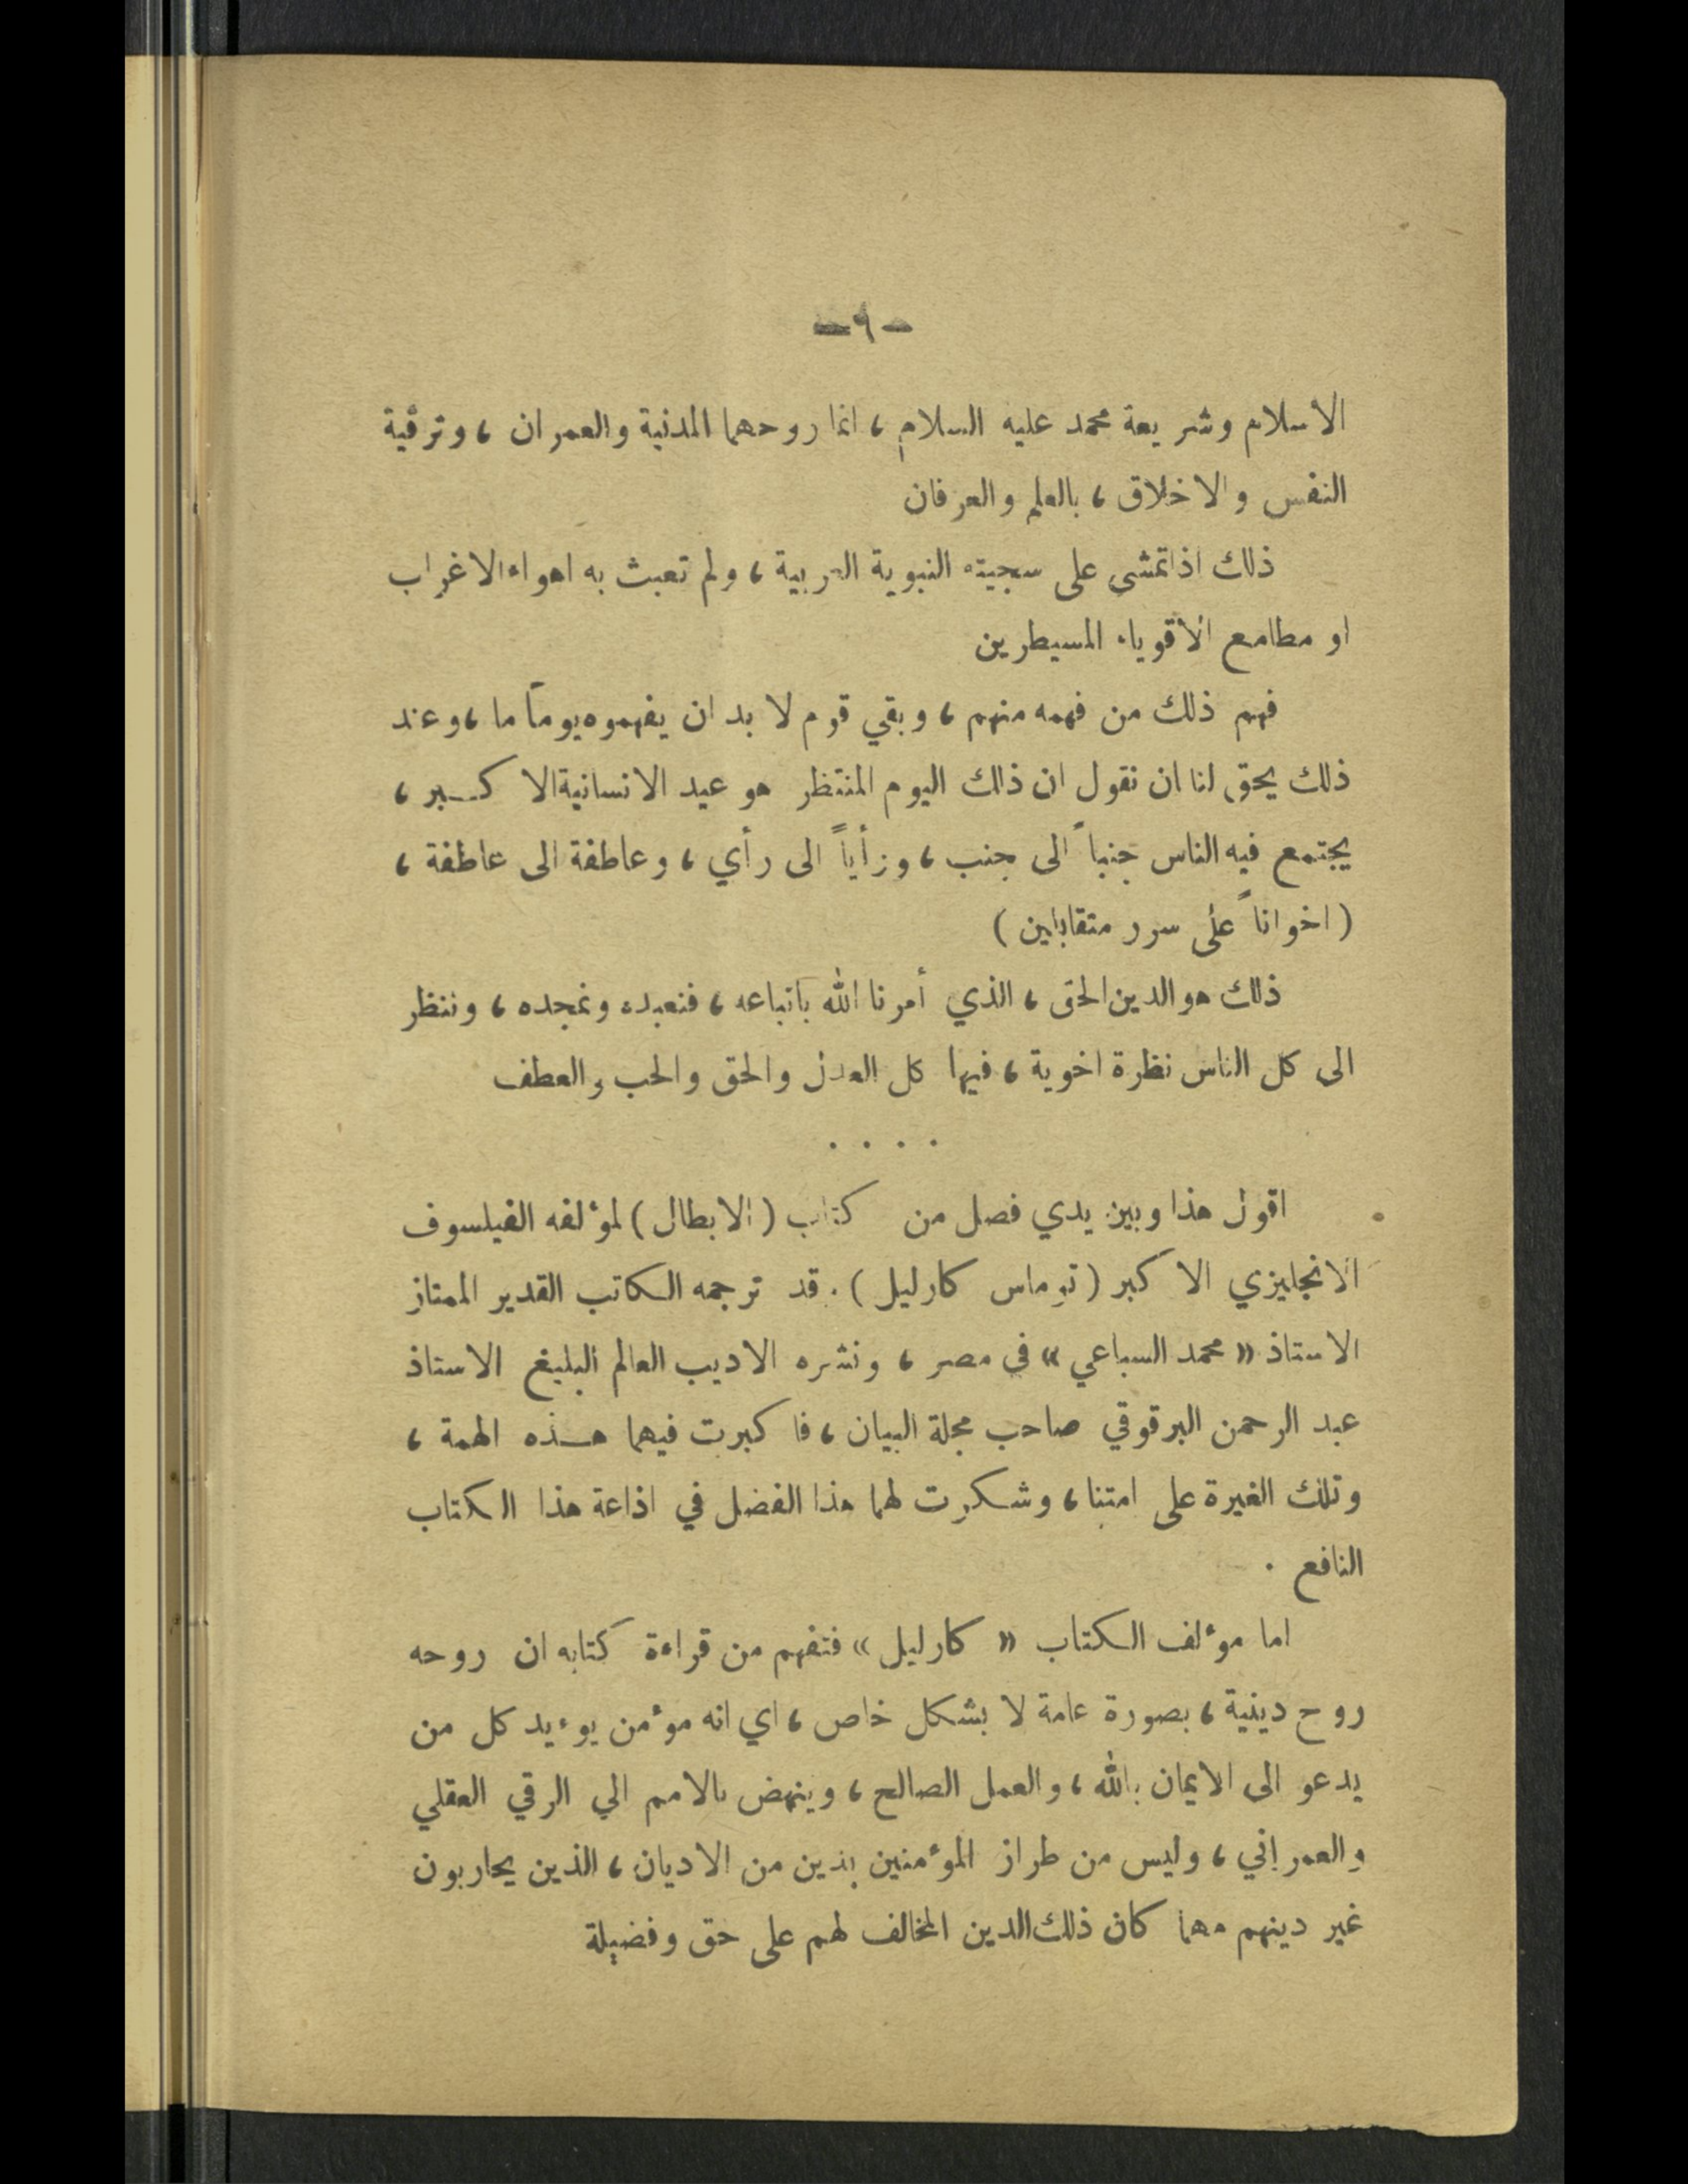 ـ ٩ ـ
الاسلام وشريعة محمد عليه السلام ، انما روحهما المدنية والعمران ، وترقية
النفس والاخلاق ، بالعلم والعرفان
ذلك اذا تمشى على سجيته النبوية العربية ، ولم تعبث به اهواء الاغراب
او مطامع الاقوياء المسيطرين
فهم ذلك من فهمه منهم ، وبقي قوم لا بد ان يفهموه يوماً ما ، وعند
ذلك يحق لنا ان نقول ان ذلك اليوم المنتظر هو عيد الانسانية الاكبر ،
يجتمع فيه الناس جنباً الى جنب ، ورأياً الى رأي ، وعاطفة الى عاطفة ،
( اخواناً على سرر متقابلين )
ذلك هو الدين الحق ، الذي أمرنا الله باتباعه ، فنعبده ونمجده ، وننظر
الى كل الناس نظرة اخوية ، فيها كل العدل والحق والحب والعطف
. . . .
اقول هذا وبين يدي فصل من كتاب ( الابطال ) لموٴلفه الفيلسوف
الانجليزي الاكبر ( توماس كارليل ) . قد ترجمه الكاتب القدير الممتاز
الاستاذ « محمد السباعي » في مصر ، ونشره الاديب العالم البليغ الاستاذ
عبد الرحمن البرقوقي صاحب مجلة البيان ، فاكبرت فيهما هذه الهمة ،
وتلك الغيرة على امتنا ، وشكرت لهما هذا الفضل في اذاعة هذا الكتاب
النافع .
اما موٴلف الكتاب « كارليل » فتفهم من قراءة كتابه ان روحه
روح دينية ، بصورة عامة لا بشكل خاص ، اي انه موٴمن يوٴيد كل من
يدعو الى الايمان بالله ، والعمل الصالح ، وينهض بالامم الي الرقي العقلي
والعمراني ، وليس من طراز الموٴمنين بدين من الاديان ، الذين يحاربون
غير دينهم مهما كان ذلك الدين المخالف لهم على حق وفضيلة